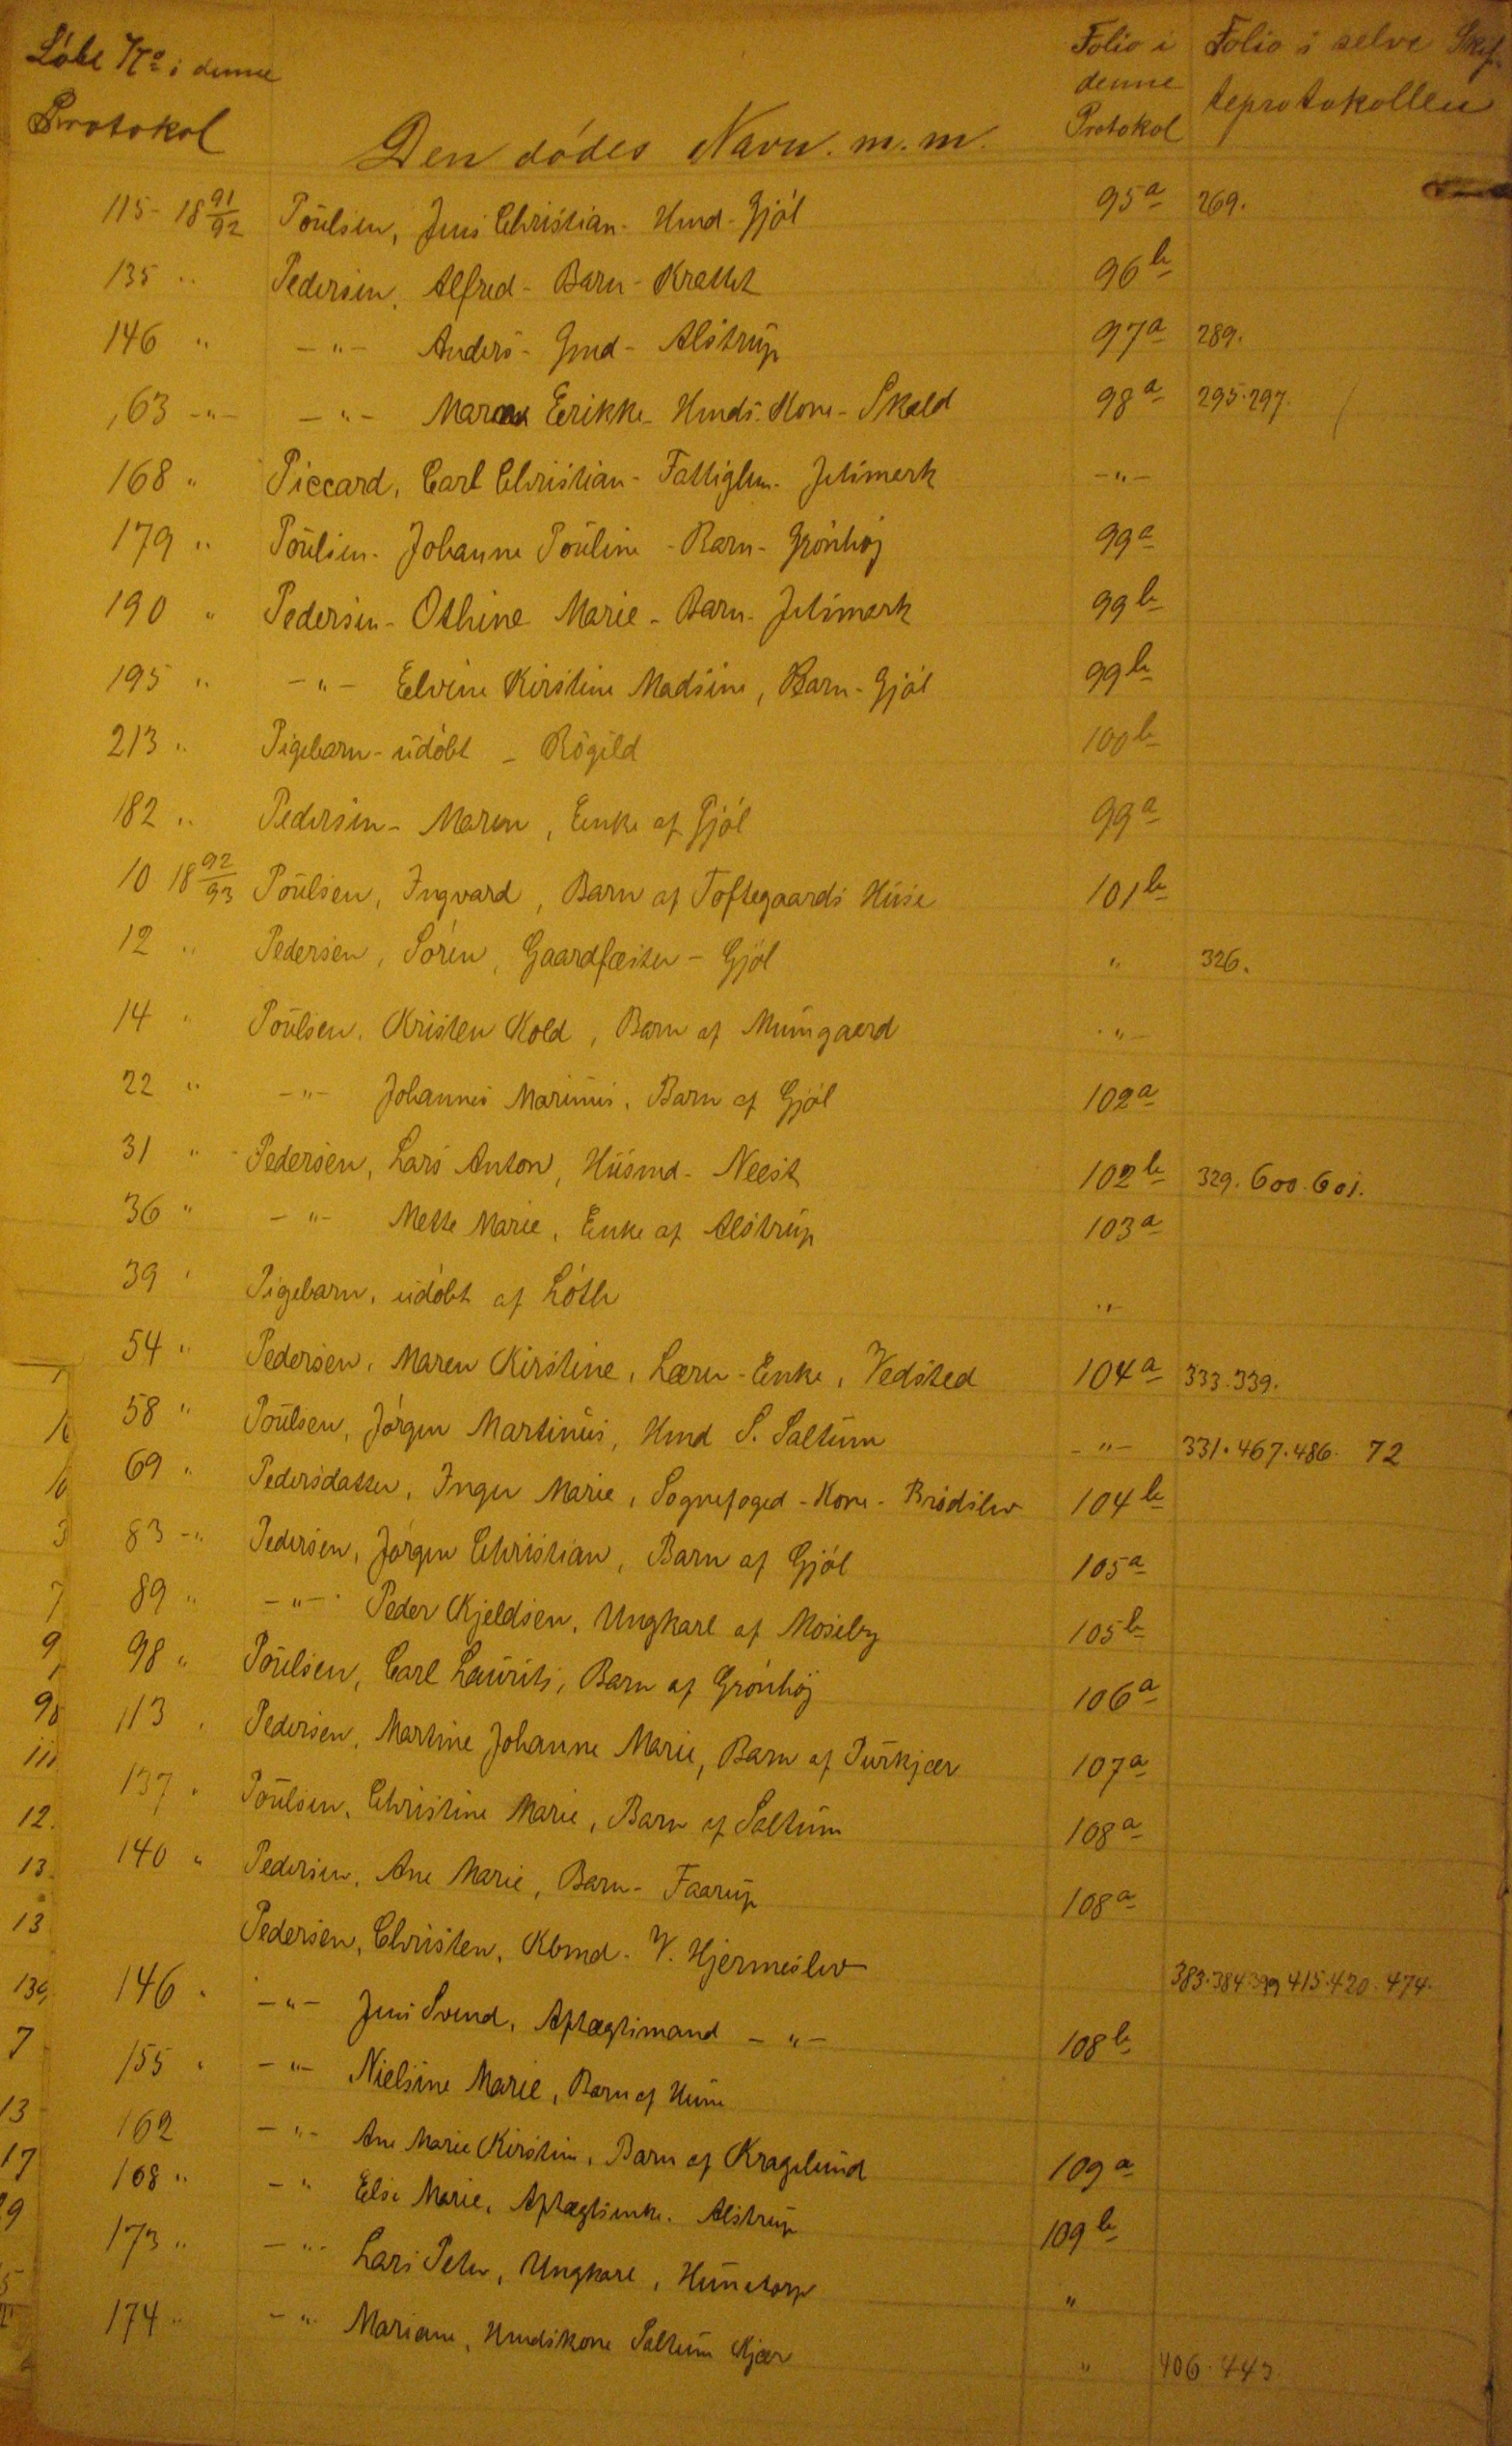 Löbe No i denne Protokol Den dódes Navn. m. m. Folio i denne Protokol Folio i selve Skifteprotokollen
115 - 18 91/92 Poulsen, Jens Christian - Hmd - Gjøl 95a 269.
135 " Pedersen, Alfred - Barn - Krattet 96b
146 " - " - Anders - Gmd - Alstrup 97a 289.
163 - " - - " - Maren Eerikke - Hmds. Kone - Skald 98a 295. 297.
168 " Piccard, Carl Christian - Fattiglem - Jetsmark - " -
179 " Poulsen - Johanne Pouline - Barn - Grönhøj 99a
190 " Pedersen - Othine Marie - Barn - Jetsmark 99b
195 " - " - Elvine Kirstine Madsine, Barn - Gjøl 99b
213 " Pigebarn - udöbt - Rögild 100b
182 " Pedersen - Maren, Enke af Gjøl 99a
10 18 92/93 Poulsen, Ingvard, Barn af Toftegaards Huse 101b
12 " Pedersen, Sören, Gaardfæster - Gjøl " 326.
14 " Poulsen, Kristen Kold, Barn af Mungaard - " -
22 " - " - Johannes Marinus, Barn af Gjøl 102a
31 " Pedersen, Lars Anton, Husmd - Neest 102b 329. 600. 601.
36 " - " - Mette Marie, Enke af Alstrup 103a
39 " Pigebarn, udöbt af Löth "
54 " Pedersen, Maren Kirstine, Lærer - Enke, Vedsted 104a 333. 339.
58 " Poulsen, Jörgen Martinus, Hmd S. Saltum - " - 331. 467. 486. 72
69 " Pedersdatter, Inger Marie, Sognefoged - Kone - Brödslev 104b
83 - " Pedersen, Jörgen Christian, Barn af Gjøl 105a
89 " - " - Peder Kjeldsen, Ungkarl af Moseby 105b
98 " Poulsen, Carl Laurits, Barn af Grönhøj 106a
113 " Pedersen, Martine Johanne Marie, Barn af Purkjær 107a
137 " Poulsen, Christine Marie, Barn af Saltum 108a
140 " Pedersen, Ane Marie, Barn - Faarup 108a
Pedersen, Christen, Kbmd - V. Hjermeslev 383. 384 399 415. 420. 474.
146 " - " - Jens Svend, Aftægtsmand - " - 108b
155 " - " - Nielsine Marie, Barn af Hune
162 - " - Ane Marie Kirstine, Barn af Kragelund 109a
168 " - " Else Marie, Aftægtsenke. Alstrup 109b
173 " - " - Lars Peter, Ungkarl, Hunetorp "
174 " - " Mariane, Hmdskone Saltum Kjær " 406. 443